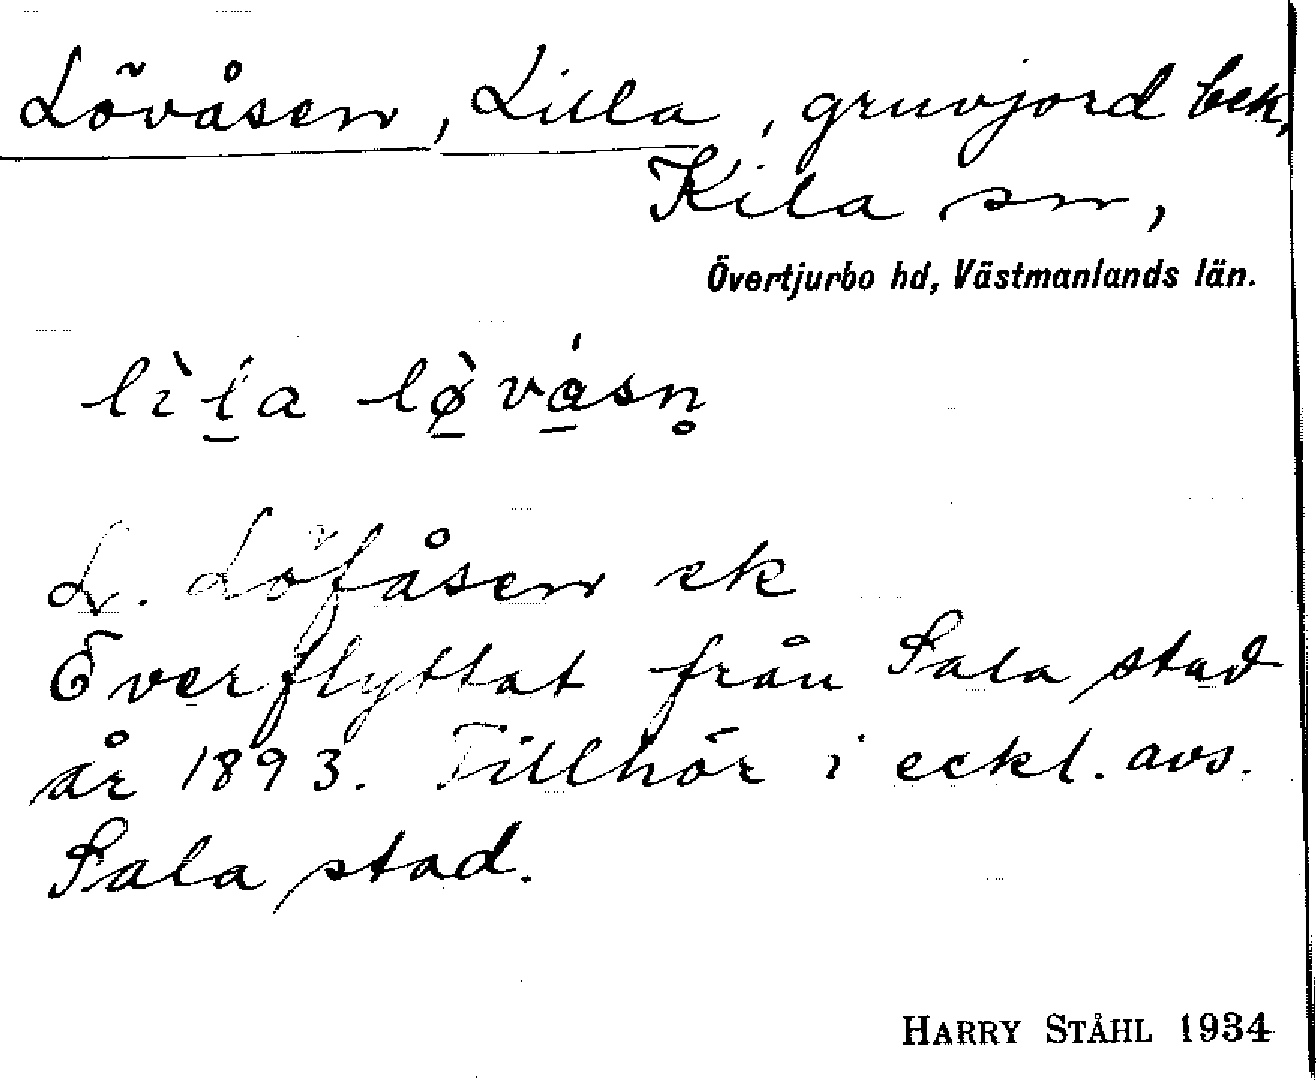 Lövåsen, Lilla, gruvjord bek,
Kila sn,
Övertjurbo hd, Västmanlands län.
lìl̠a lø̠̀vá̠sn̥
L. Löfåsen ek
Överflyttat från Sala stad
år 1893. Tillhör i eckl. avs.
Sala stad.
HARRY STÅHL 1934